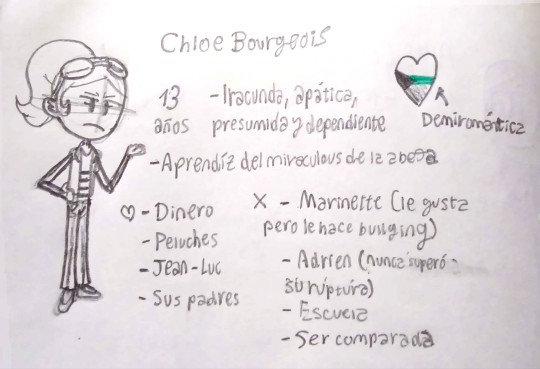 Chloe Bourgeois
13 años
- Iracunda, apática, presumida y dependiente
Demiromántica
- Aprendíz del miraculous de la abeja
♡ - Dinero
- Peluches
- Jean-Luc
- Sus padres
X - Marinette (le gusta
pero le hace bullying)
- Adrien (nunca superó
su ruptura)
- Escuela
- Ser comparada